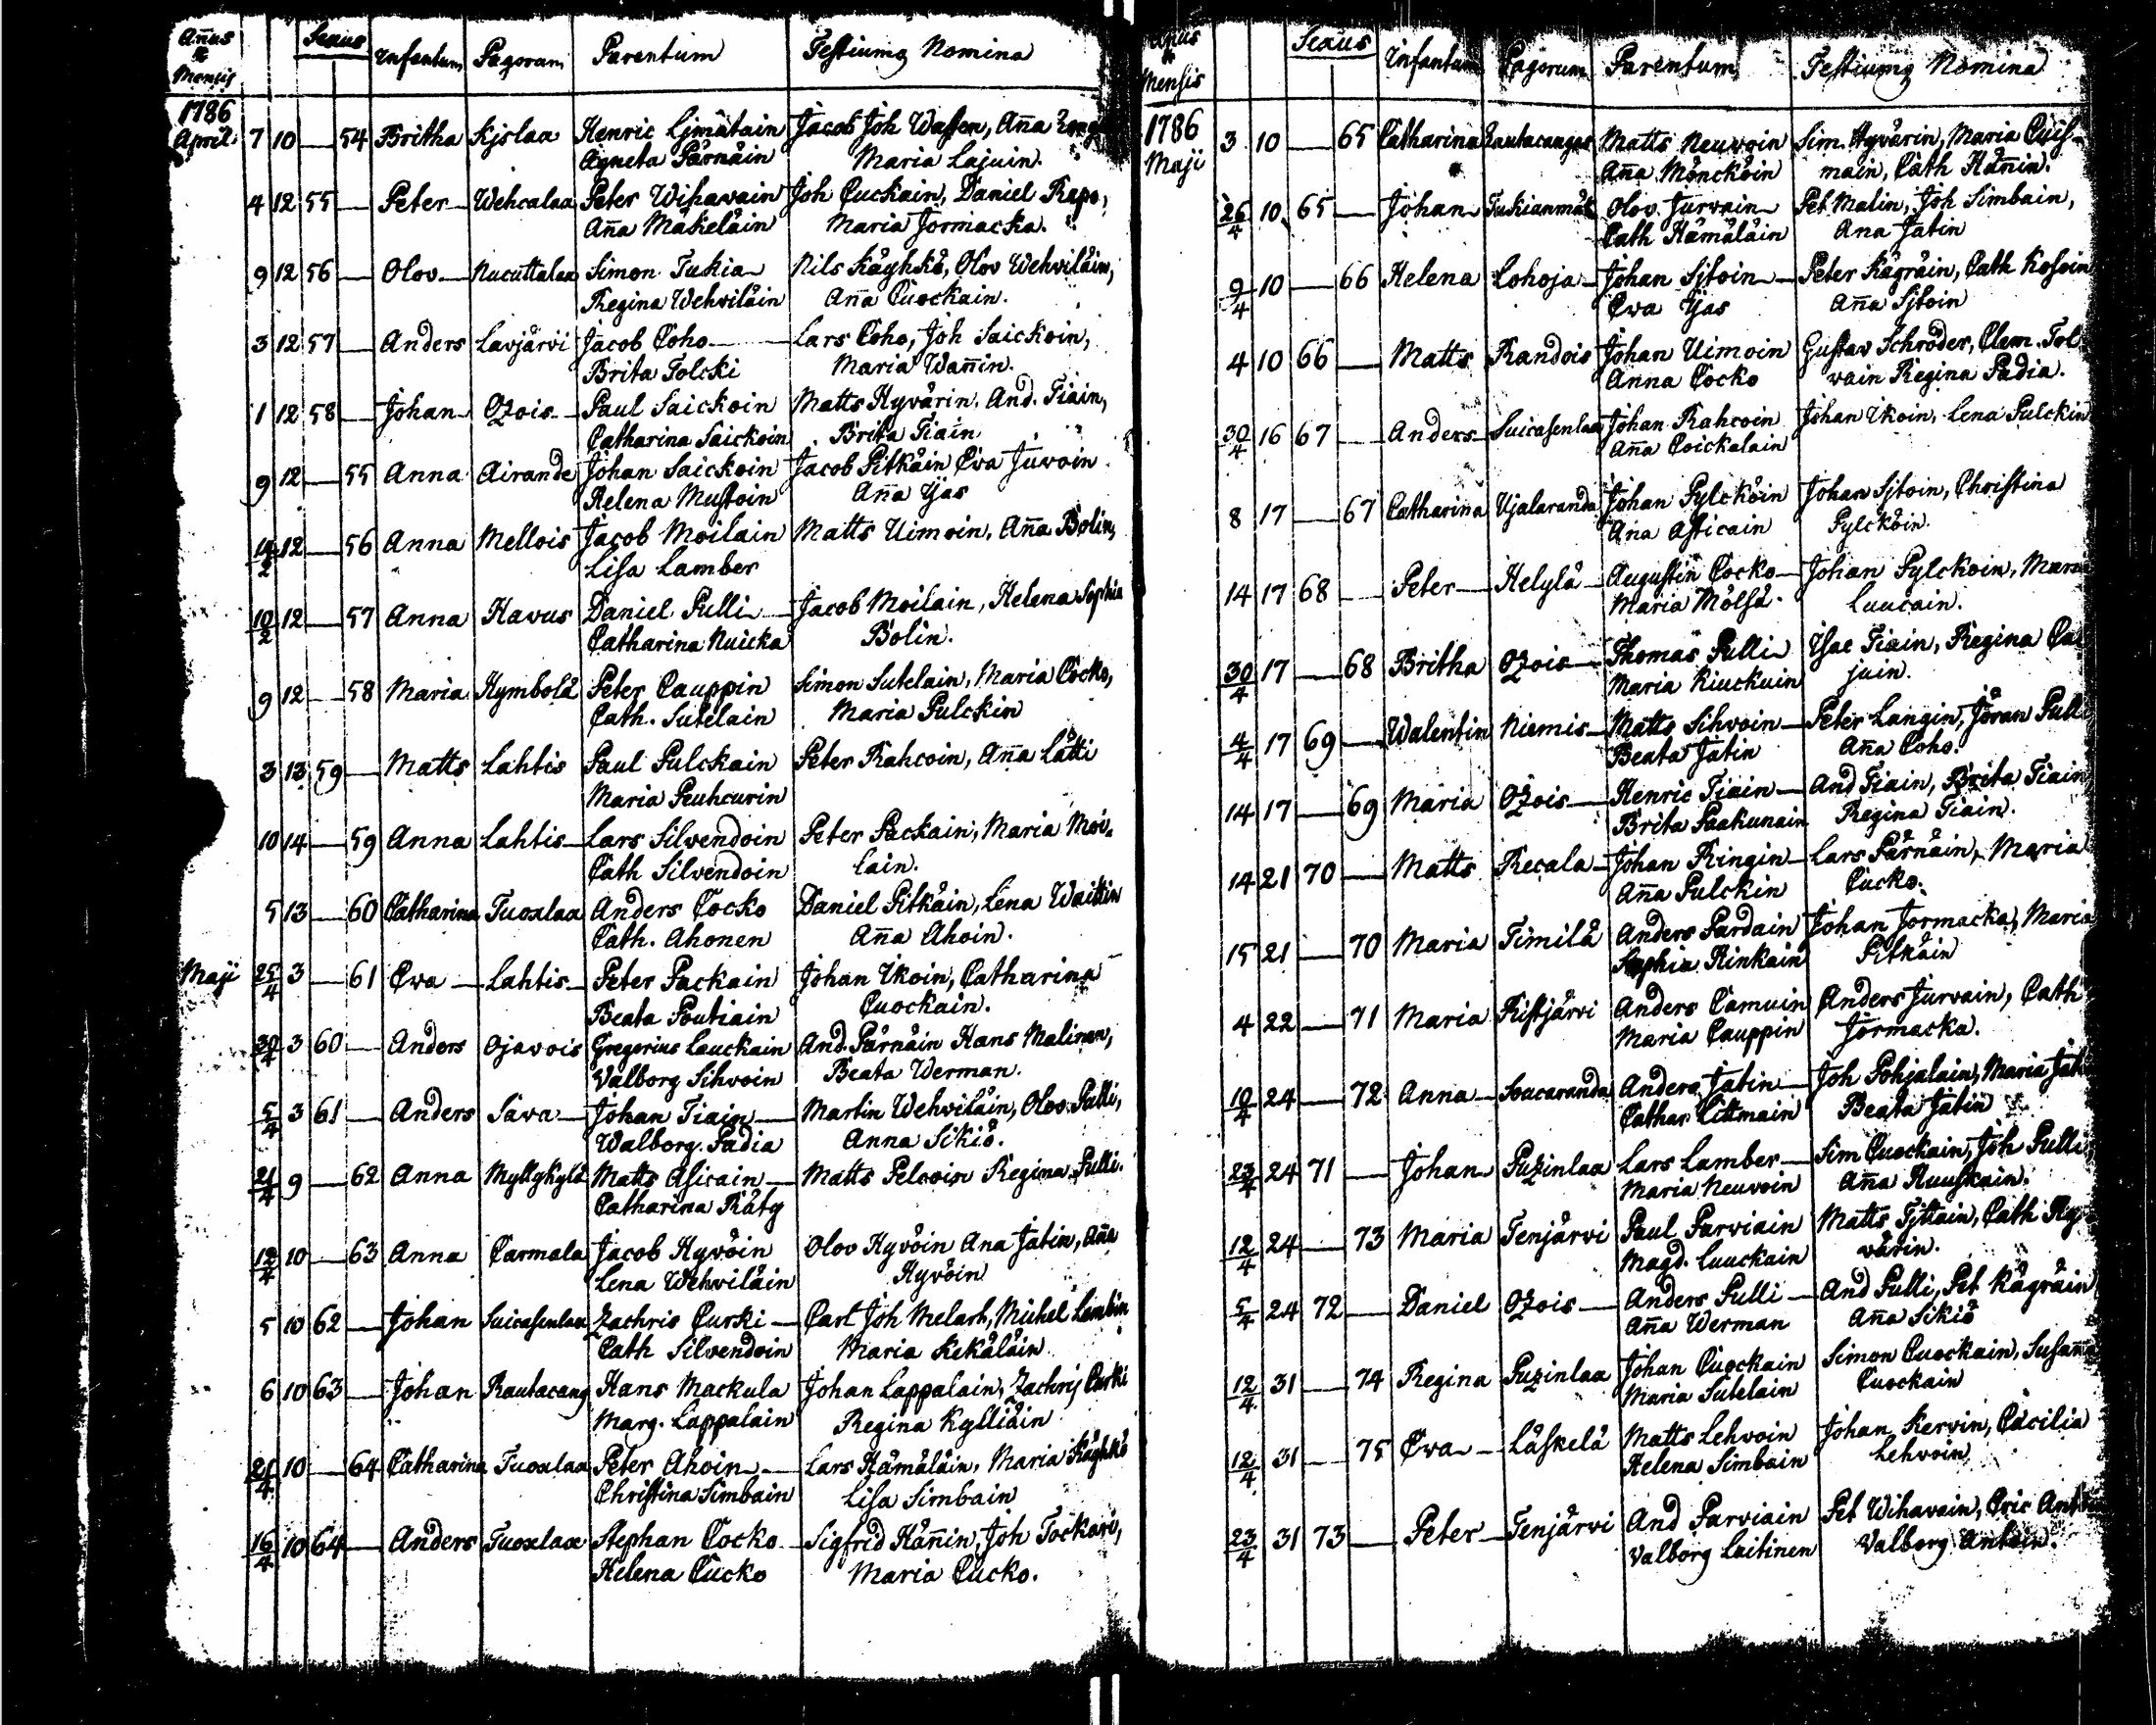 Añus & Mensis Sexus Infantum Pagorum Parentum Testiumq Nomina
1786
April. 7 10 — 54 Britha Kjslaa Henric Ljmätain Jacob Joh Wassen, Aña
Agneta Pärnäin Maria Lajuin.
4 12 55 — Peter Wehcalaa Peter Wihavain Joh Cuckain, Daniel Rapo,
Aña Mäkeläin Maria Jormacka.
9 12 56 — Olov Nucuttalaa Simon Tukia Nils Käyhkö, Olov Wehviläin,
Regina Wehviläin Aña Cuockain.
3 12 57 — Anders Lavjärvi Jacob Coho Lars Coho, Joh Saickoin,
Brita Tolcki Maria Wañin.
1 12 58 — Johan Ozois Paul Saickoin Matts Hyvärin. And. Tiain,
Catharina Saickoin Brita Tiain
9 12 — 55 Anna Airande Johan Saickoin Jacob Pitkäin Eva Juvoin
Helena Mustoin Aña Yjas
14/2 12 — 56 Anna Mellois Jacob Moilain Matts Uimoin, Aña Bolin,
Lisa Lamber
10/2 12 — 57 Anna Havus Daniel Pulli Jacob Moilain, Helena Sophia
Catharina Nuicka Bolin.
9 12 — 58 Maria Hymbolä Peter Cauppin Simon Sutelain, Maria Cocko,
Cath. Sutelain Maria Pulckin
3 13 59 — Matts Lahtis Paul Pulckain Peter Rahcoin, Aña Lätti
Maria Peuhcurin
10 14 — 59 Anna Lahtis Lars Silvendoin Peter Packain, Maria Moi-
Cath Silvendoin lain.
5 13 — 60 Catharina Tuoxlaa Anders Cocko Daniel Pitkäin, Lena Waittin
Cath. Ahonen Aña Ahoin.
Maji 25/4 3 — 61 Eva Lahtis Peter Packain Johan Ikoin, Catharina
Beata Poutiain Cuockain.
30/4 3 60 — Anders Ojavois Gregorius Lauckain And. Pärnäin Hans Malinen,
Valborg Sihvoin Beata Werman.
5/4 3 61 — Anders Säva Johan Tiain Martin Wehviläin, Olov Pulli,
Walborg Padia Anna Sikiö.
21/4 9 — 62 Anna Myllykylä Matts Asicain Matts Pelvoin Regina Pulli.
Catharina Räty
12/4 10 — 63 Anna Carmala Jacob Hyvöin Olov Hyvöin Ana Jatin, Aña
Lena Wehviläin Hyvöin
5 10 62 — Johan Suicasenlaa Zachris Curki Carl Joh Melart, Michel Lambin
Cath Silvendoin Maria Kekäläin
6 10 63 — Johan Rautacang Hans Mackula Johan Lappalain, Zachrij Curki
Marg. Lappalain Regina Kylliäin
21/4 10 — 64 Catharina Tuoxlaa Peter Ahoin Lars Hämäläin, Maria Käyhkö
Christina Simbain Lisa Simbain
16/4 10 64 — Anders Tuoxlaa Stephan Cocko Sigfrid Häñin, Joh Tockari,
Helena Cucko Maria Cucko.
Añus & Mensis Sexus Infantum Pagorum Parentum Testiumq Nomina
1786
Maji 3 10 — 65 Catharina Rautacangas Matts Neuvoin Sim. Hyvärin, Maria Cuis-
Aña Möncköin main, Cath Häñin.
26/4 10 65 — Johan Tukianmäk Olov Jurvain Pet Malin, Joh Simbain,
Cath Hämäläin Ana Jatin
9/4 10 — 66 Helena Lohoja Johan Sjtoin Peter Kägräin, Cath Kosoin
Eva Yjas Aña Sjtoin
4 10 66 — Matts Randois Johan Uimoin Gustav Schröder, Clem. Tol-
Anna Cocko vain Regina Padia.
30/4 16 67 — Anders Suicasenlaa Johan Rahcoin Johan Ikoin, Lena Pulckin
Aña Coickalain
8 17 — 67 Catharina Yjalaranda Johan Pylcköin Johan Sjtoin, Christina
Ana Asicain Pylcköin.
14 17 68 — Peter Helylä Augustin Cocko Johan Pylckoin, Maria
Maria Mölsä. Luucain.
30/4 17 — 68 Britha Ozois Thomas Pulli Isac Tiain, Regina Ca
Maria Kiuckuin juin.
4/4 17 69 — Walentin Niemis Matts Sihvoin Peter Langin, Jöran Pulli
Beata Jatin Aña Coho.
14 17 — 69 Maria Ozois Henric Tiain And Tiain, Brita Tiain
Brita Paakunain Regina Tiain.
14 21 70 — Matts Recala Johan Ringin Lars Pärnäin, Maria
Aña Pulckin Cucko.
15 21 — 70 Maria Timilä Anders Pardain Johan Jormacka, Maria
Sophia Rinkain Pitkäin
4 22 — 71 Maria Ristjärvi Anders Camuin Anders Jurvain, Cath
Maria Cauppin Jormacka.
10/4 24 — 72 Anna Soacaranda Anders Jatin Joh Pohjalain, Maria Jati
Cathar Littmain Beata Jatin
23/4 24 71 — Johan Puzinlaa Lars Lamber Sim Cuockain, Joh Pulli,
Maria Neuvoin Aña Ruuskain.
12/4 24 — 73 Maria Tenjärvi Paul Parviain Matts Tjttain, Cath Hy-
Magd. Luuckain värin.
5/4 24 72 — Daniel Ozois Anders Pulli And Pulli, Pet Kägräin
Aña Werman Aña Sikiö
12/4 31 — 74 Regina Puzinlaa Johan Cuockain Simon Cuockain, Susaña
Maria Sutelain Cuockain
12/4 31 — 75 Eva Läskelä Matts Lehvoin Johan Kervin, Cäcilia
Helena Simbain Lehvoin
23/4 31 73 — Peter Tenjärvi And Parviain Pet Wihavain, Eric
Valborg Laitinen Valborg Antoin.